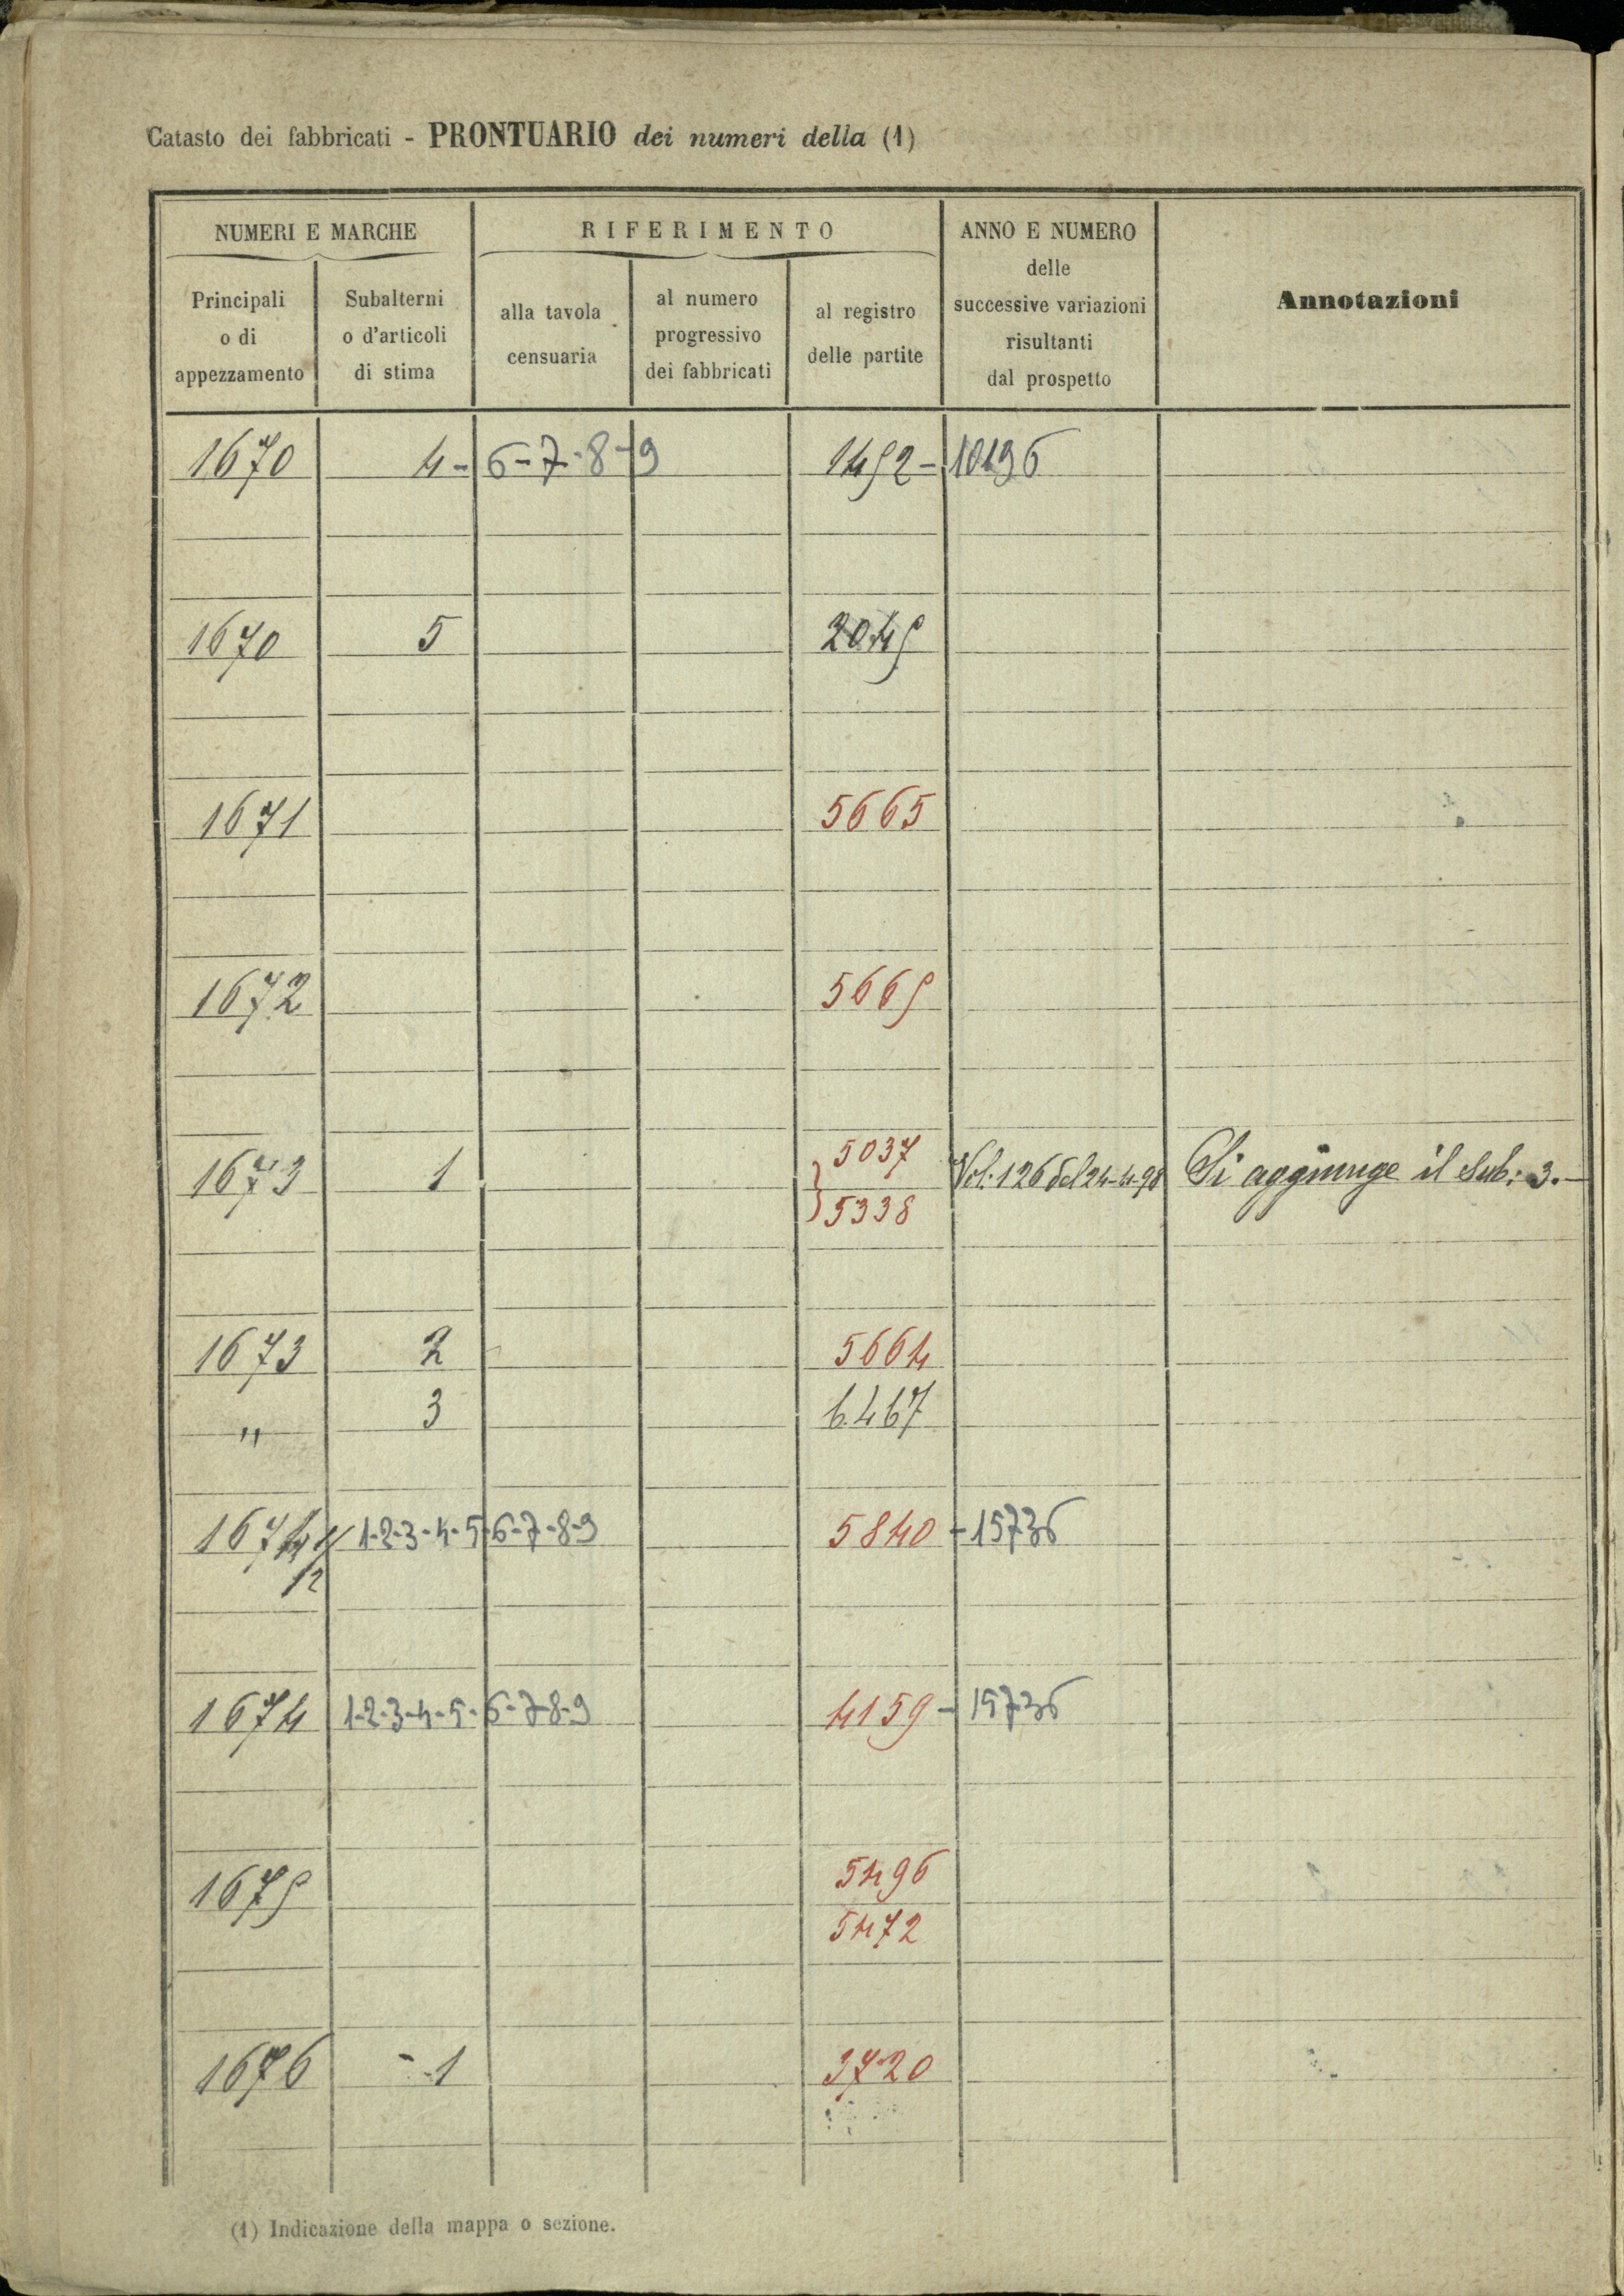 Catasto dei fabbricati - PRONTUARIO dei numeri della (1)
NUMERI E MARCHE
RIFERIMENTO
ANNO E NUMERO
delle
successive variazioni
risultanti
dal prospetto
Annotazioni
Principali
o di
appezzamento
Subalterni
o d'articoli
di stima
alla tavola
censuaria
al numero
progressivo
dei fabbricati
al registro
delle partite
1670 4-6-7-8-9 1492-10196
1670 5 2049
1671 5665
1672 5669
5037
1673 1 Vol. 126 del 24-4-98 Si aggiunge il Sub: 3.-
5338
1673 2 5664
" 3 6467
1674 1/ 1-2-3-4-5-6-7-8-9 5840 -15736
12
1674 1-2-3-4-5-6-7-8-9 4159-15736
5496
1675
5472
1676 -1 3720
(1) Indicazione della mappa o sezione.